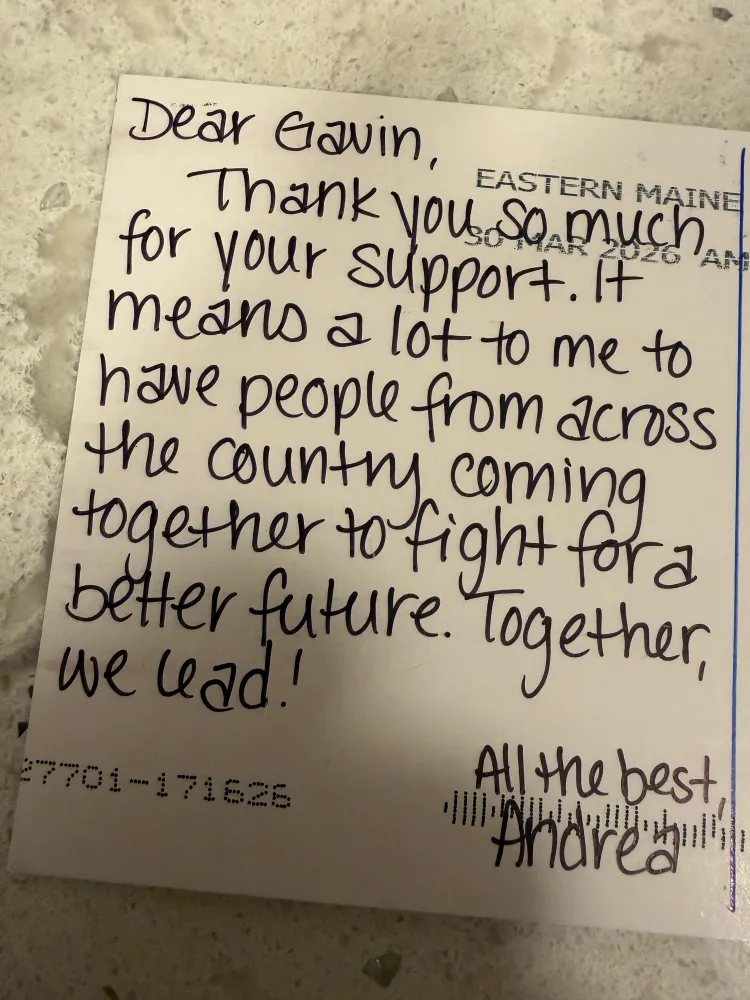 Dear Gavin,
EASTERN MAINE
Thank you so much
30 MAR 2026 AM
for your support. It
means a lot to me to
have people from across
the country coming
together to fight for a
better future. Together,
we lead!
27701-171626
All the best,
Andrea